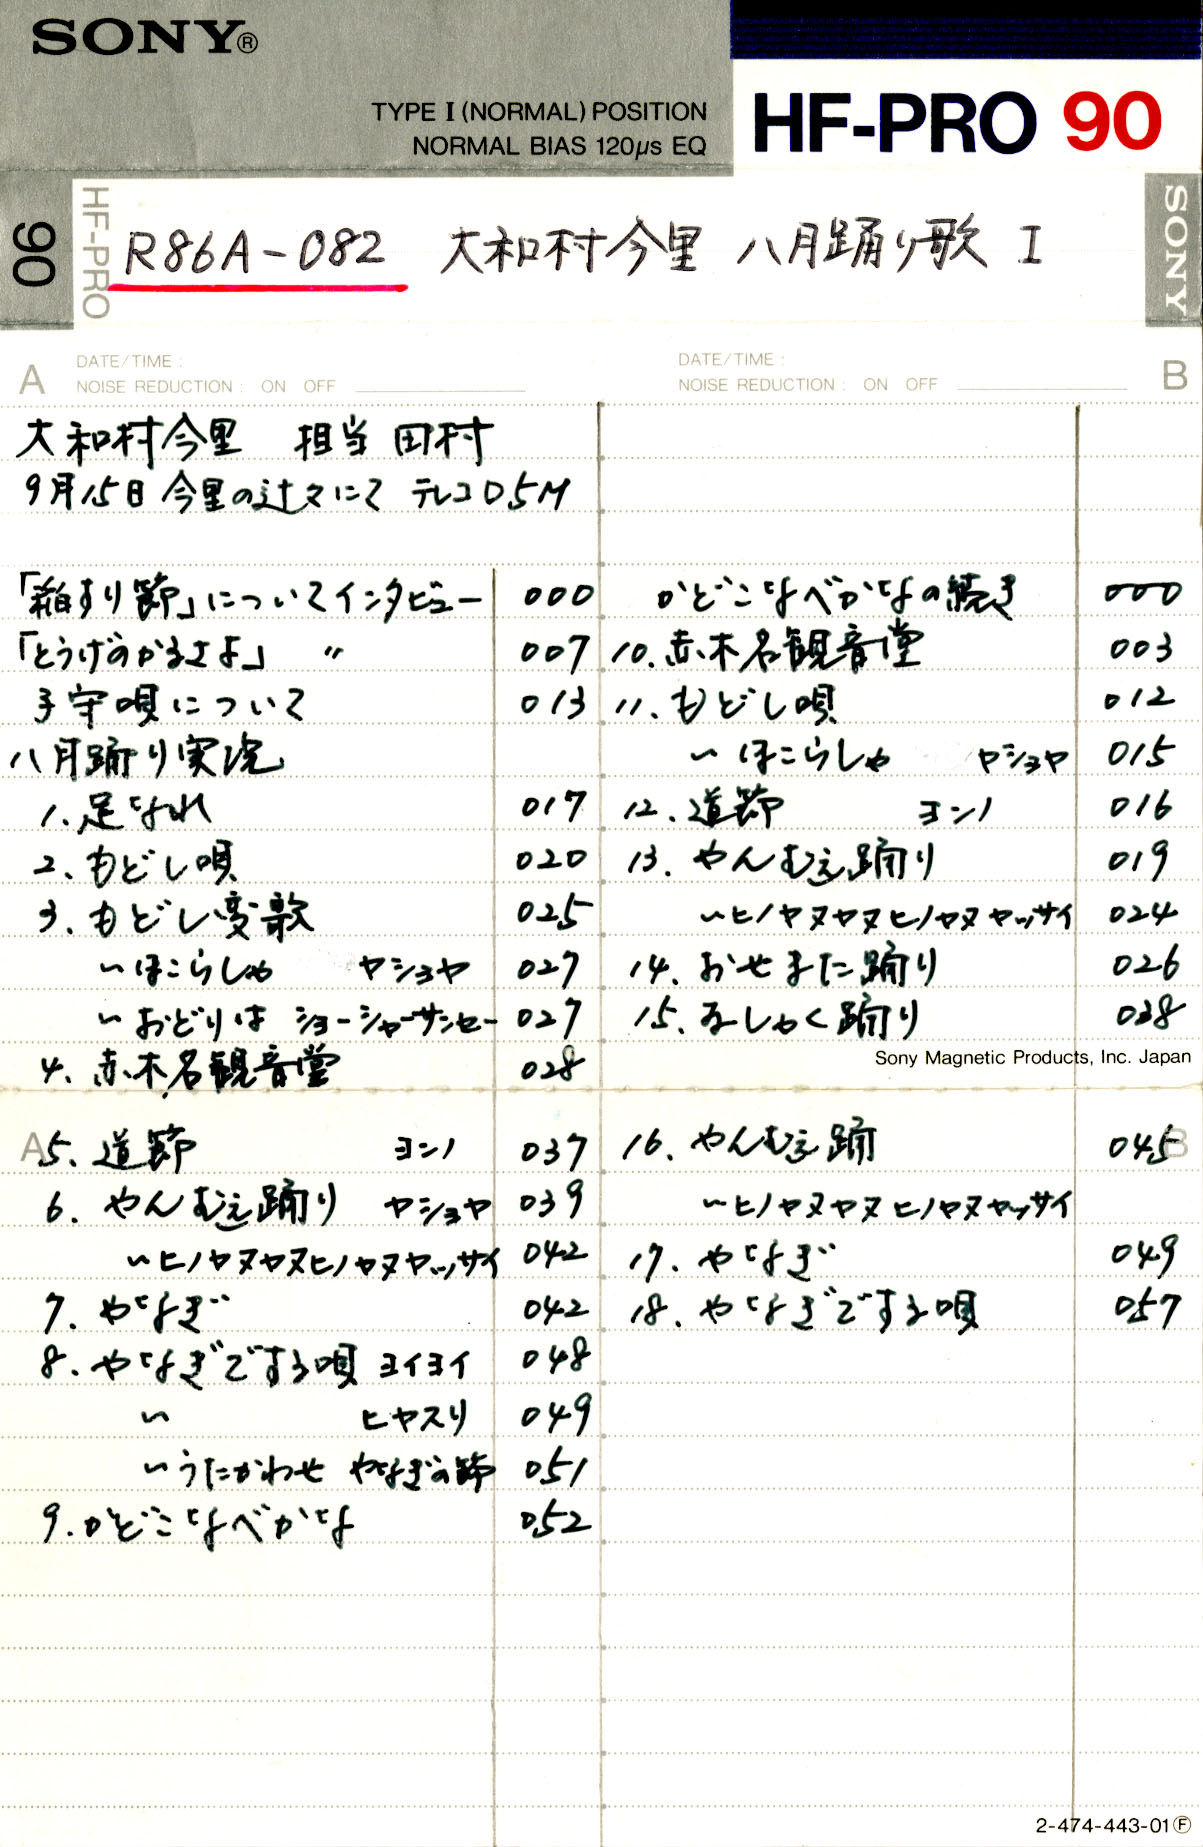 SONY®
TYPE I (NORMAL) POSITION
NORMAL BIAS 120μs EQ
HF-PRO 90
90
HF-PRO
R86A-082 大和村今里 八月踊り歌 I
SONY
A
DATE/TIME :
NOISE REDUCTION : ON OFF
大和村今里 担当 田村
9月15日 今里の辻々にて テレコD5M
「稲すり節」についてインタビュー 000
「とうげのかるさよ」 〃 007
子守唄について 013
八月踊り実況
1. 足なれ 017
2. もどし唄 020
3. もどし変歌 025
〜ほこらしゃ ヤショヤ 027
〜おどりは ショーシャーサンセー 027
4. 赤木名観音堂 028
A
5. 道節 ヨンノ 037
6. やんむえ踊り ヤショヤ 039
〜ヒノヤヌヤヌヒノヤヌヤッサイ 042
7. やなぎ 042
8. やなぎでする唄 ヨイヨイ 048
〃 ヒヤスリ 049
〃うたかわせ やなぎの節 051
9. かどこなべかな 052
B
DATE/TIME :
NOISE REDUCTION : ON OFF
かどこなべかなの続き 000
10. 赤木名観音堂 003
11. もどし唄 012
〜ほこらしゃ ヤショヤ 015
12. 道節 ヨンノ 016
13. やんむえ踊り 019
〜ヒノヤヌヤヌヒノヤヌヤッサイ 024
14. おせまた踊り 026
15. みしゃく踊り 038
Sony Magnetic Products, Inc. Japan
B
16. やんむえ踊 045
〜ヒノヤヌヤヌヒノヤヌヤッサイ
17. やなぎ 049
18. やなぎでする唄 057
2-474-443-01Ⓕ